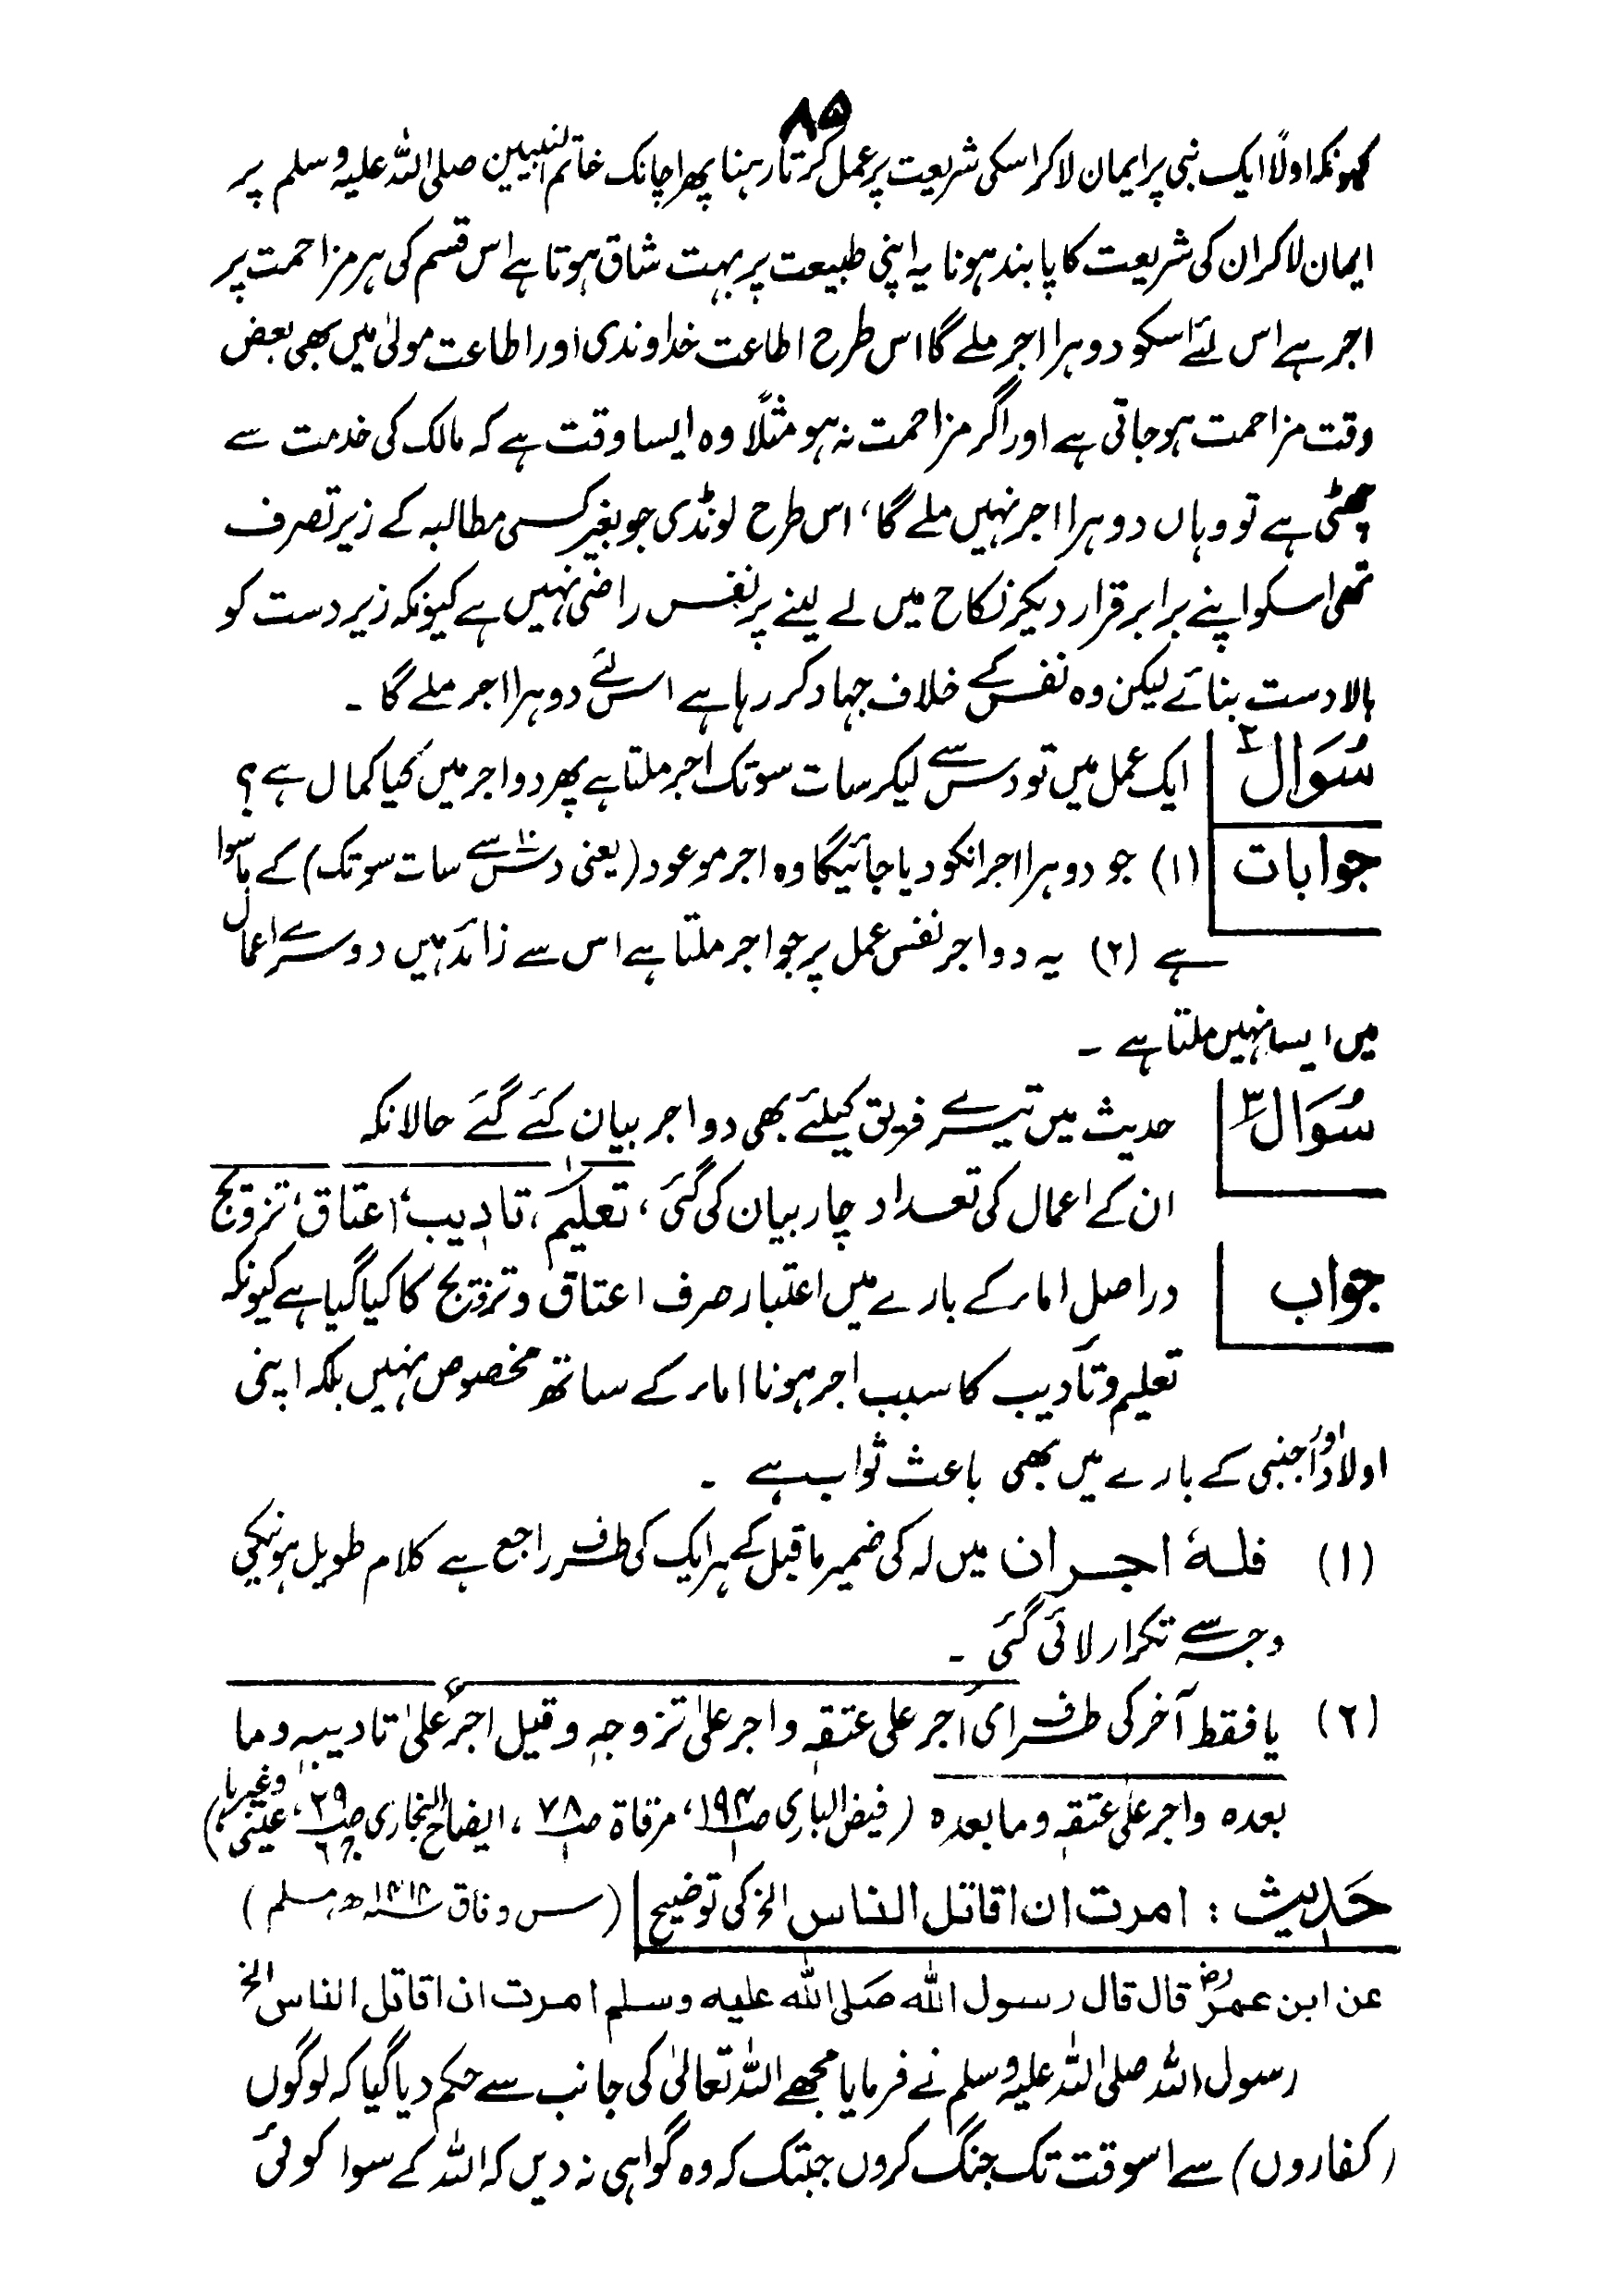 ۸۵
کیونکہ اولاً ایک نبی پر ایمان لاکر اسکی شریعت پر عمل کرتا رہنا پھر اچانک خاتم النبیین صلی اللہ علیہ وسلم پر
ایمان لاکر ان کی شریعت کا پابند ہونا یہ اپنی طبیعت پر بہت شاق ہوتا ہے اس قسم کی ہر مزاحمت پر
اجر ہے اس لئے اسکو دوہرا اجر ملے گا اس طرح اطاعت خداوندی اور اطاعت مولیٰ میں بھی بعض
وقت مزاحمت ہوجاتی ہے اور اگر مزاحمت نہ ہو مثلًا وہ ایسا وقت ہے کہ مالک کی خدمت سے
چھٹی ہے تو وہاں دوہرا اجر نہیں ملے گا، اس طرح لونڈی جو بغیر کسی مطالبہ کے زیر تصرف
تھی اسکو اپنے برابر قرار دیکر نکاح میں لے لینے پر نفس راضی نہیں ہے کیونکہ زیردست کو
بالا دست بنائے لیکن وہ نفس کے خلاف جہاد کر رہا ہے اس لئے دوہرا اجر ملے گا ۔
سُوَال ۲ ایک عمل میں تو دس سے لیکر سات سو تک اجر ملتا ہے پھر دو اجر میں کیا کمال ہے ؟
جوابات (۱) جو دوہرا اجر انکو دیا جائیگا وہ اجر موعود (یعنی دس ۱۰ سے سات سو تک) کے ماسوا
ہے (۲) یہ دو اجر نفس عمل پر جو اجر ملتا ہے اس سے زائد ہیں دوسرے اعمال
میں ایسا نہیں ملتا ہے ۔
سُوَال ۳ حدیث میں تیسرے فریق کیلئے بھی دو اجر بیان کئے گئے حالانکہ
ان کے اعمال کی تعداد چار بیان کی گئی، تعلیم، تادیب، اعتاق، تزوّج
جواب دراصل اماء کے بارے میں اعتبار صرف اعتاق و تزوّج کا کیا گیا ہے کیونکہ
تعلیم و تادیب کا سبب اجر ہونا اماء کے ساتھ مخصوص نہیں بلکہ اپنی
اولاد اور اجنبی کے بارے میں بھی باعث ثواب ہے ۔
(۱) فلہٗ اجران میں لہ کی ضمیر ماقبل کے ہر ایک کی طرف راجع ہے کلام طویل ہونیکی
وجہ سے تکرار لائی گئی ۔
(۲) یا فقط آخر کی طرف ای اجر علی عتقہ واجر علیٰ تزوجہ وقیل اجرٌ علیٰ تادیبہ وما
بعدہ واجر علیٰ عتقہ وما بعدہ (فیض الباری صـ۱۹۳/۱، مرقاۃ صـ۷۸/۱، ایضاح البخاری صـ۲۹، عینی وغیرہا)
حَدِیث : امرت ان اقاتل الناس الخ کی توضیح (س وفاق ۱۴۱۴ھ مسلم)
عن ابن عمرؓ قال قال رسول اللہ صَلی اللہ علیہ وسلم امرت ان اقاتل الناس الخ
رسول اللہ صلی اللہ علیہ وسلم نے فرمایا مجھے اللہ تعالیٰ کی جانب سے حکم دیا گیا کہ لوگوں
(کفاروں) سے اسوقت تک جنگ کروں جبتک کہ وہ گواہی نہ دیں کہ اللہ کے سوا کوئی